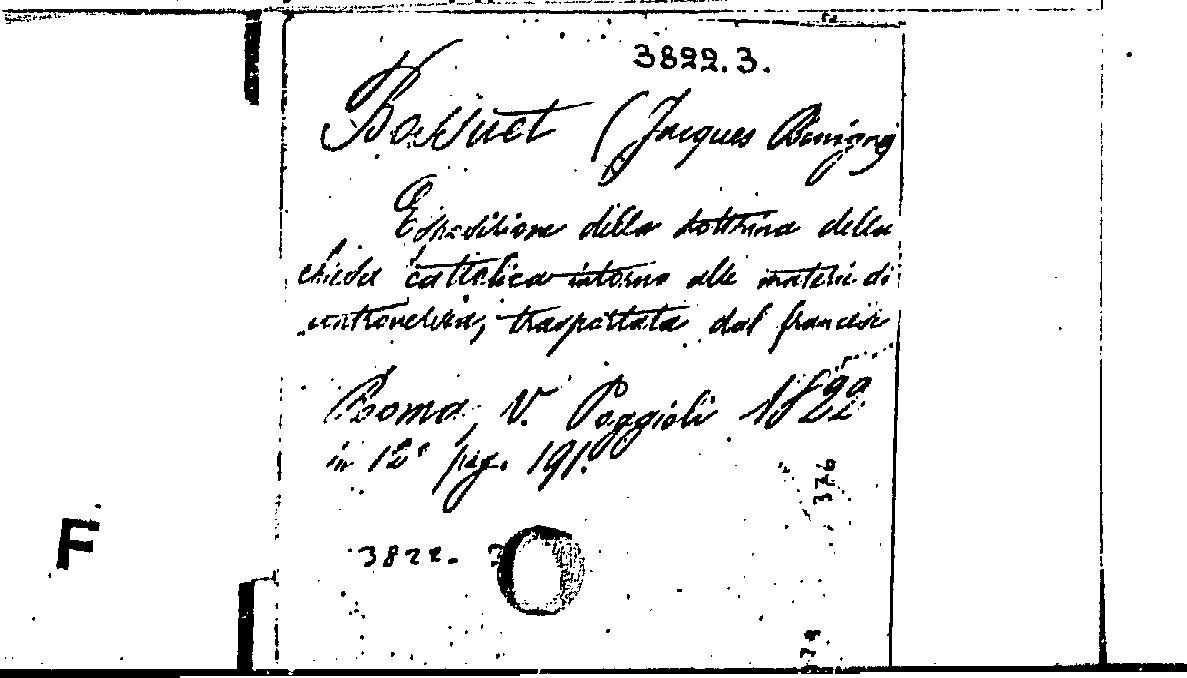 3822.3.
Bossuet (Jacques Benigne)
Esposizione della dottrina della
chiesa cattolica intorno alle materie di
controversia, trasportata dal francese
Roma, V. Poggioli 1822
in 12° pag. 191.
376
3822. 3
F